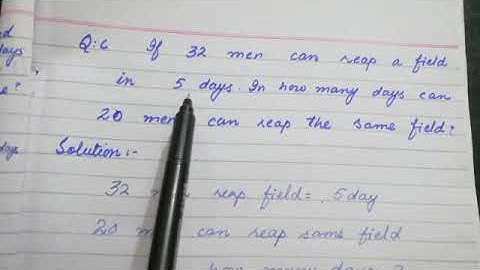 Q:6 If 32 men can reap a field
in 5 days. In how many days can
20 men can reap the same field?
Solution:-
32 reap field= 5day
20 can reap same field
how many days ?
days
e?
days